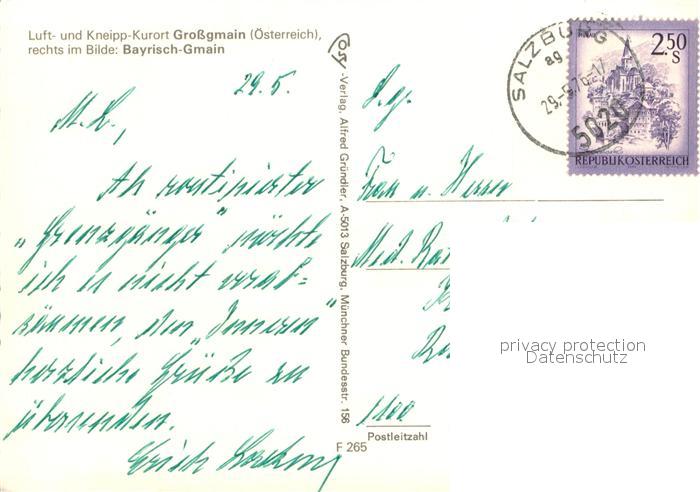 Luft- und Kneipp-Kurort Großgmain (Österreich),
rechts im Bilde: Bayrisch-Gmain
29.5.
M. L.,
Als routinierter
„Grenzgänger" möchte
ich es nicht verab=
säumen, den „Inneren"
herzliche Grüße zu
übersenden.
Erich
ÖSV -Verlag, Alfred Gründler, A-5013 Salzburg, Münchner Bundesstr. 156
F 265
S. g.
Frau u. Herrn
Med. Rat
1100
Postleitzahl
SALZBURG
ag
29.-5.76-17
5020
2.50
S
REPUBLIK ÖSTERREICH
privacy protection
Datenschutz